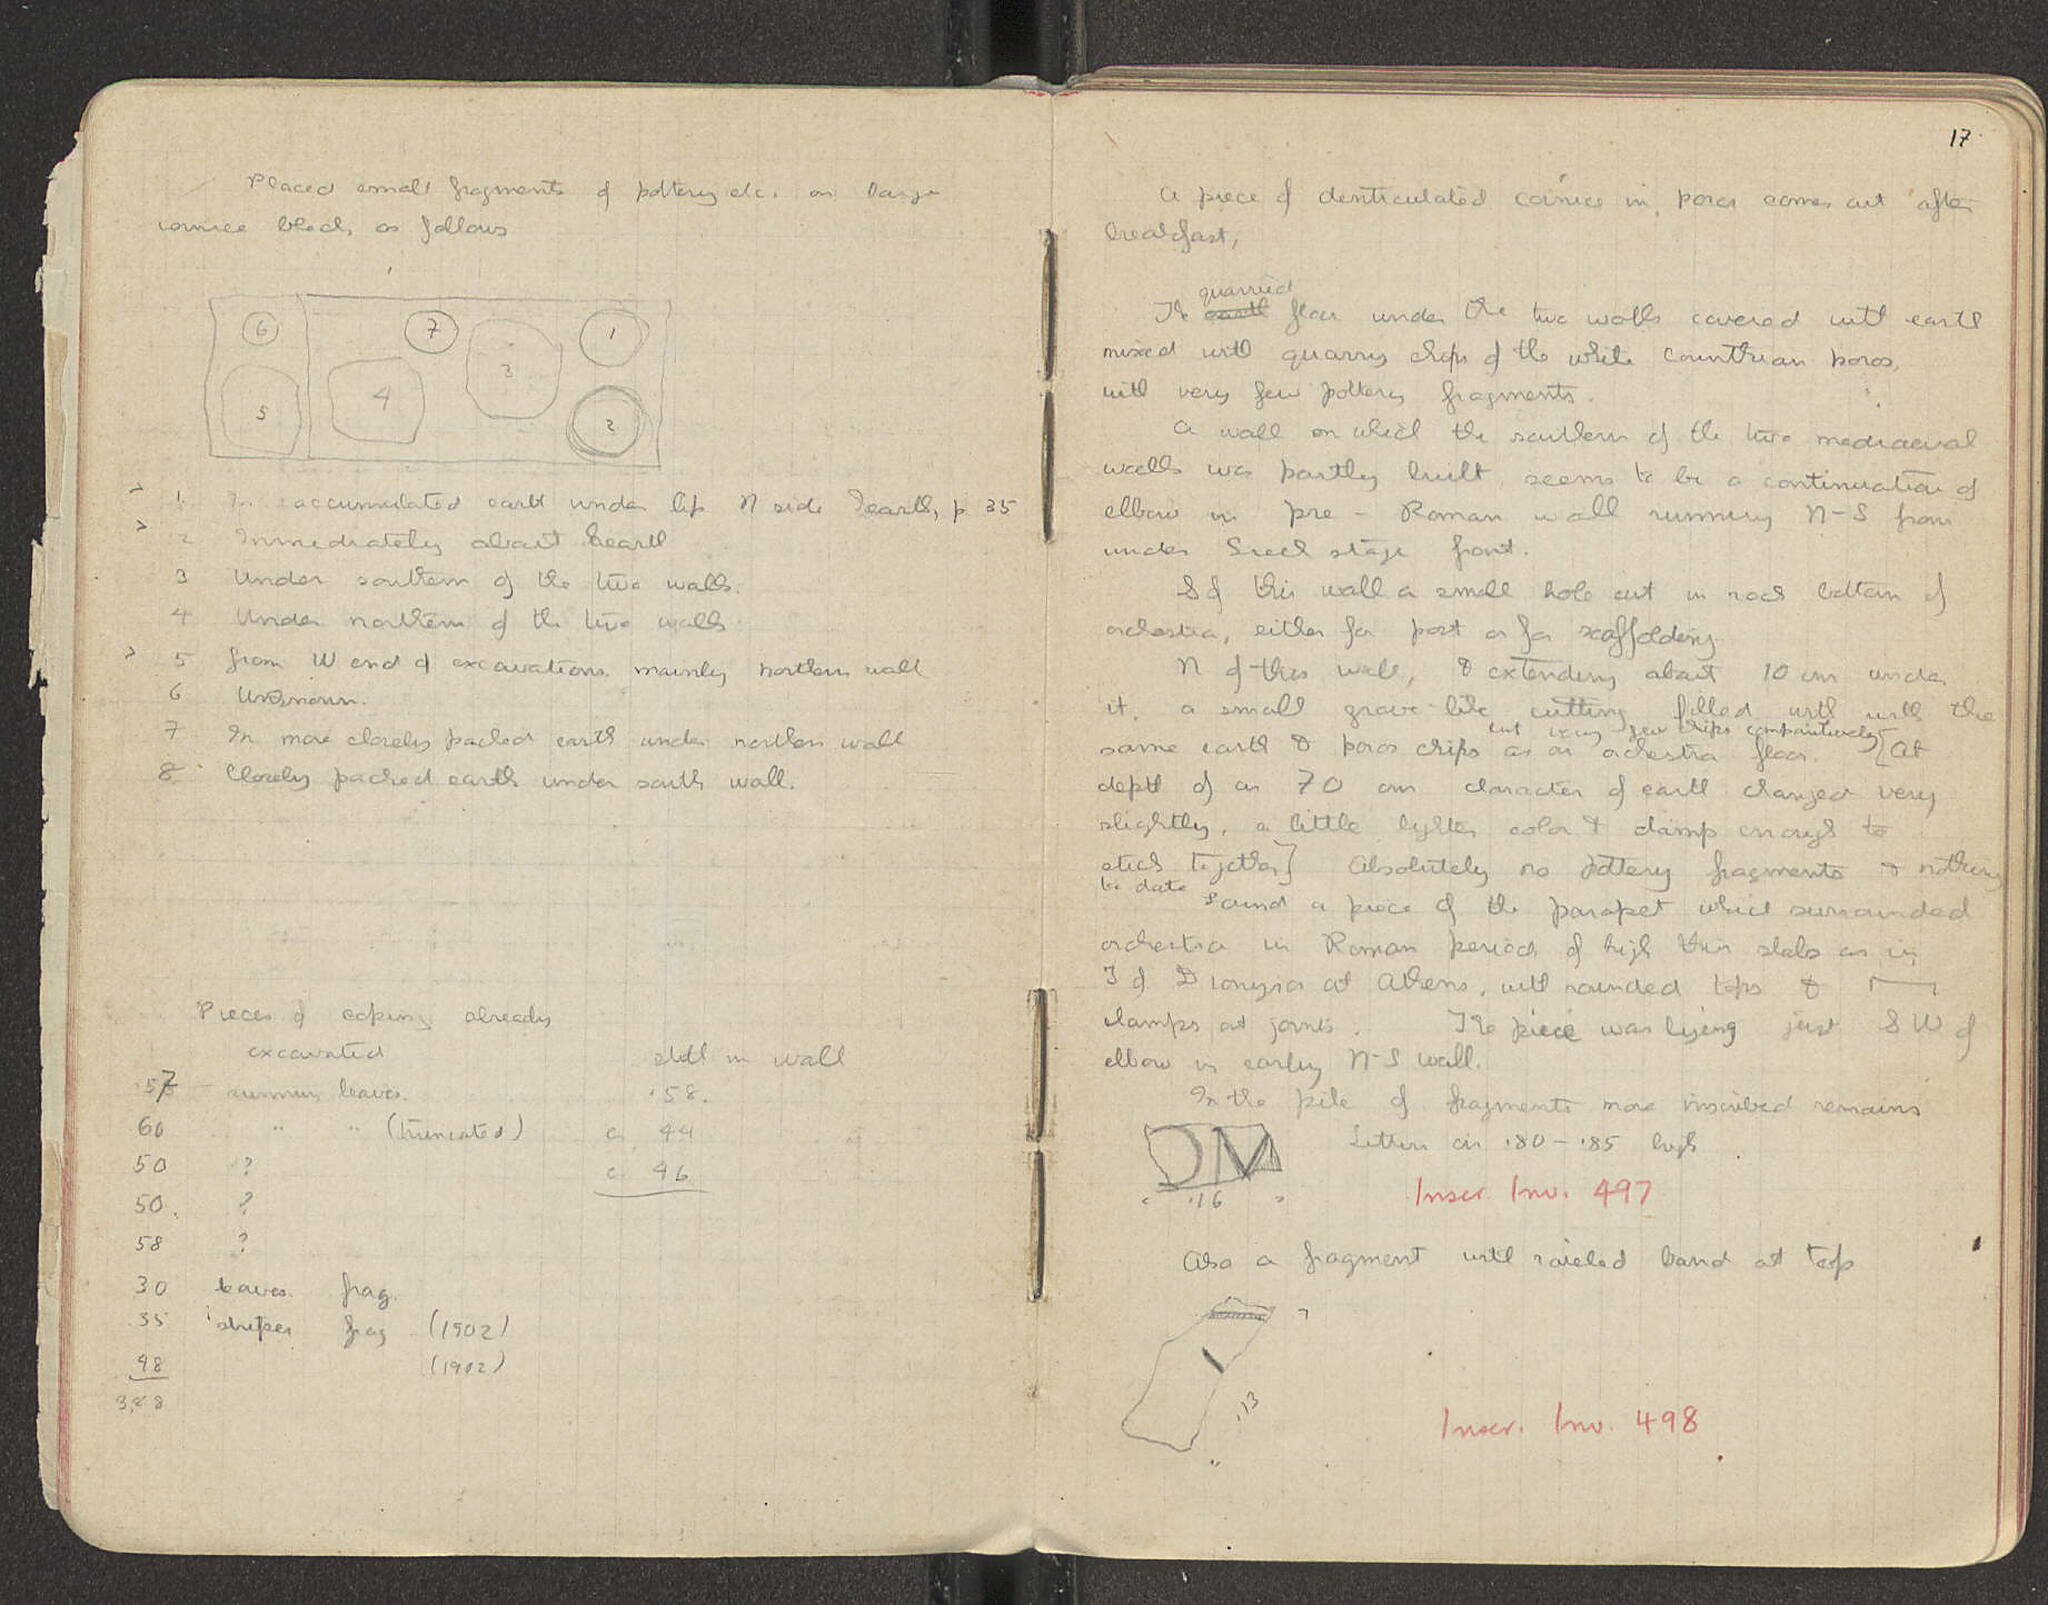 Placed small fragments of pottery etc. on large
cornice block, as follows
6
7
1
3
4
5
2
1. In accumulated earth under lip N side hearth, p 35
2 Immediately about hearth
3 Under southern of the two walls.
4 Under northern of the two walls
5 from W end of excavations, mainly northern wall
6 Unknown.
7 In more closely packed earth under northern wall
8 Closely packed earth under south wall.
Pieces of coping already
excavated still in wall
.57 running leaves. .58.
60 " " (truncated) c. 44
50 ? c. 46
50. ?
58 ?
30 leaves frag.
.35 stripes frag (1902)
48 (1902)
17
A piece of denticulated cornice in poros comes out after
breakfast,
quarried
The earth floor under the two walls covered with earth
mixed with quarry chips of the white Corinthian poros,
with very few pottery fragments.
A wall on which the southern of the two mediaeval
walls was partly built, seems to be a continuation of
elbow in pre-Roman wall running N-S from
under Greek stage front.
S of this wall a small hole cut in rock bottom of
orchestra, either for post or for scaffolding.
N of this wall, & extending about 10 cm under
it, a small grave-like cutting filled with with the
but very few chips comparatively
same earth & poros chips as on orchestra floor. [At
depth of ca 70 cm character of earth changed very
slightly, a little lighter color & damp enough to
stick together] Absolutely no pottery fragments & nothing
to date
Found a piece of the parapet which surrounded
orchestra in Roman period of high thin slabs as in
T of Dionysos at Athens, with rounded tops &
clamps at joints. The piece was lying just SW of
elbow in early N-S wall.
In the pile of fragments more inscribed remains
OM
Letters ca .80-.85 high
.16
Inscr. Inv. 497
Also a fragment with raised band at top
.13
Inscr. Inv. 498